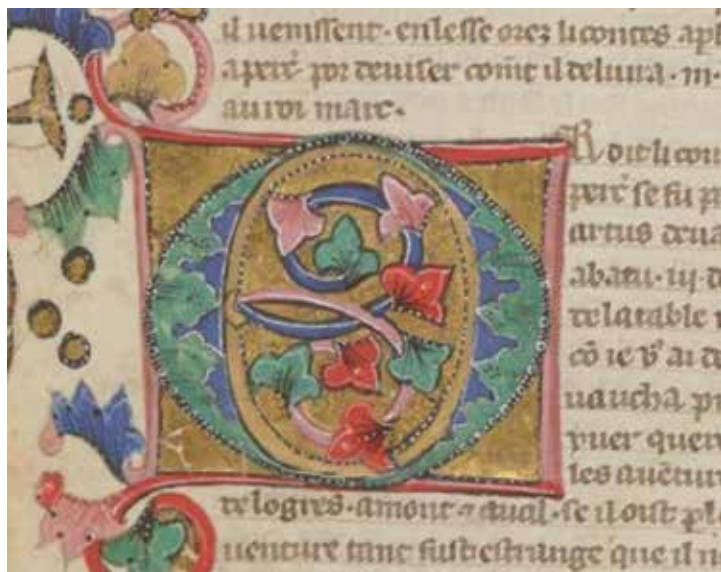 il uenissent· enlesse orez li contes apl
aperẽ por deuiser com̃t il deliura · m·
au roi marc·
O
R dit li con
perẽ se fu p
artus deua
abatu· iij· d
de la table
cõ ie vˢ ai de
uaucha p
puer quer
les auẽtur
de logres· amont ⁊ aual· se il oist pl
uenture tant fust estrange que il n